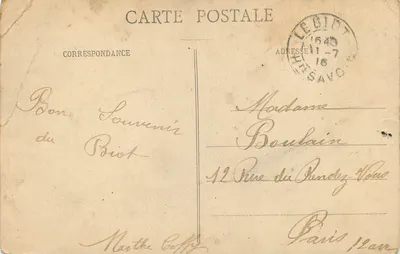 CARTE POSTALE
CORRESPONDANCE
ADRESSE
LE BIOT
1540
11-7
16
HTE SAVOIE
Bon Souvenir
du Biot
Marthe
Madame
Boulain
12 Rue du Rendez-Vous
Paris
12 arr